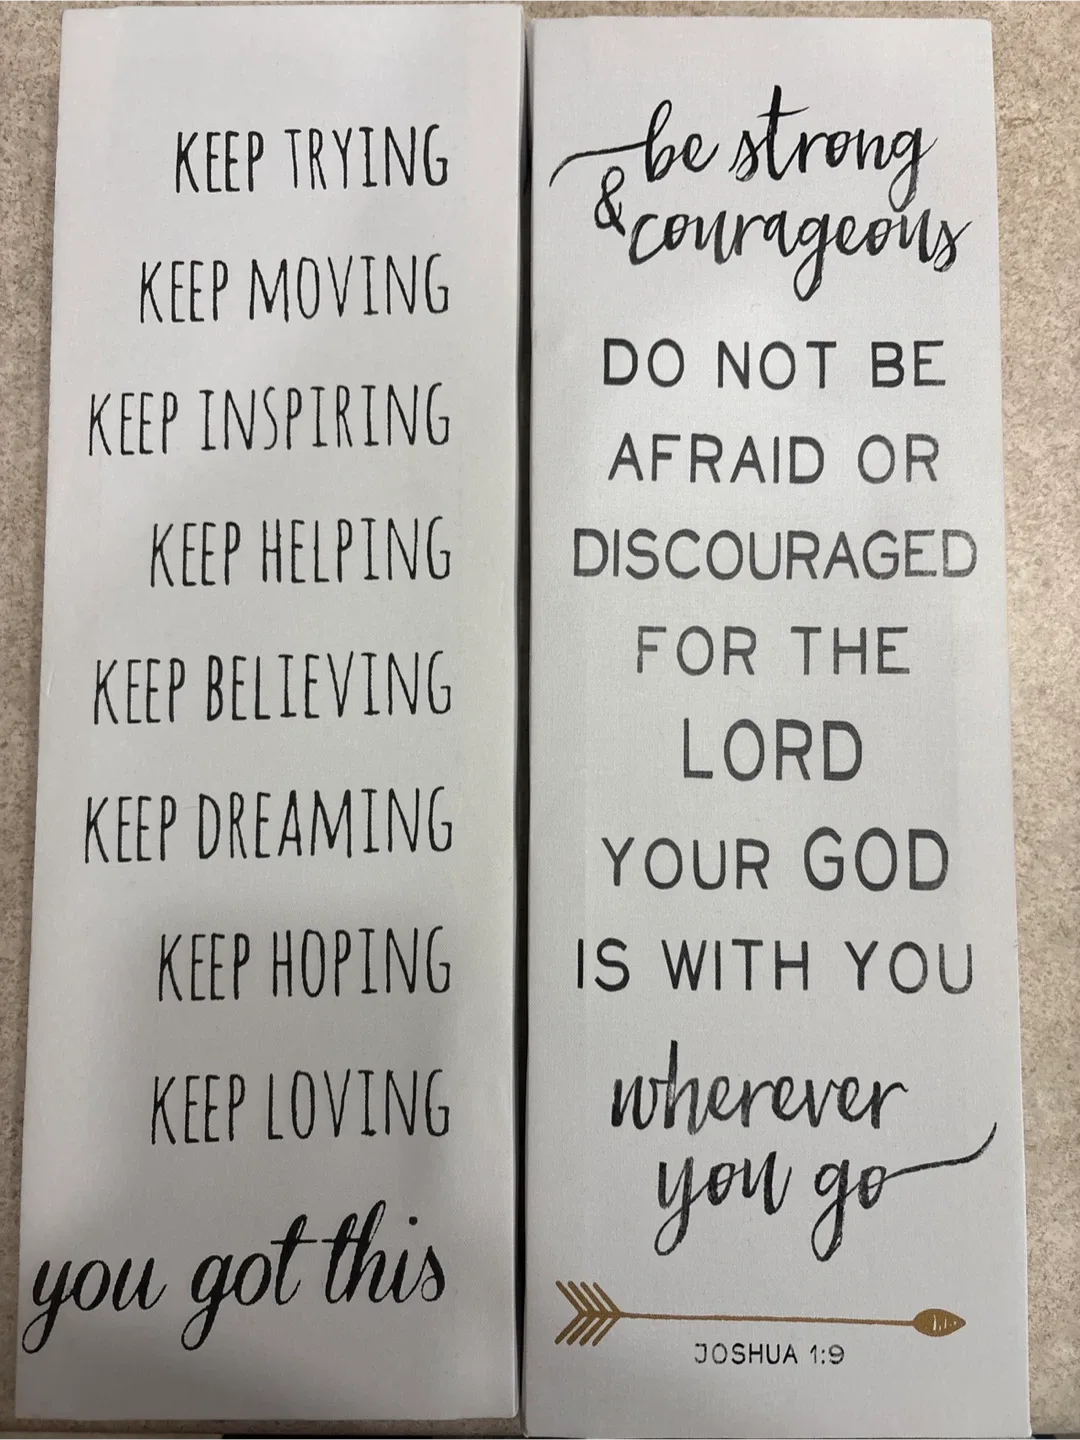 KEEP TRYING
KEEP MOVING
KEEP INSPIRING
KEEP HELPING
KEEP BELIEVING
KEEP DREAMING
KEEP HOPING
KEEP LOVING
you got this
be strong
& courageous
DO NOT BE
AFRAID OR
DISCOURAGED
FOR THE
LORD
YOUR GOD
IS WITH YOU
wherever
you go
JOSHUA 1:9